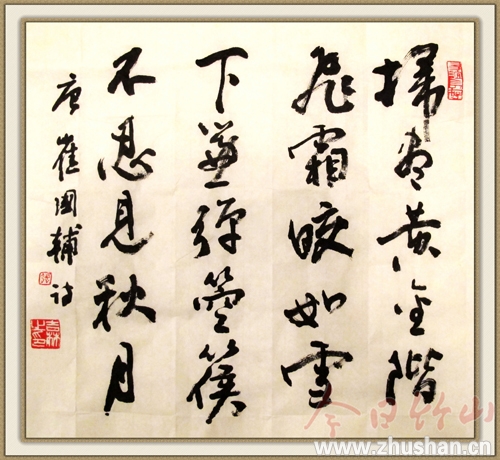 掃盡黄金階
飛霜皎如雪
下簾彈箜篌
不忍見秋月
唐崔國輔诗
今日竹山
www.zhushan.cn